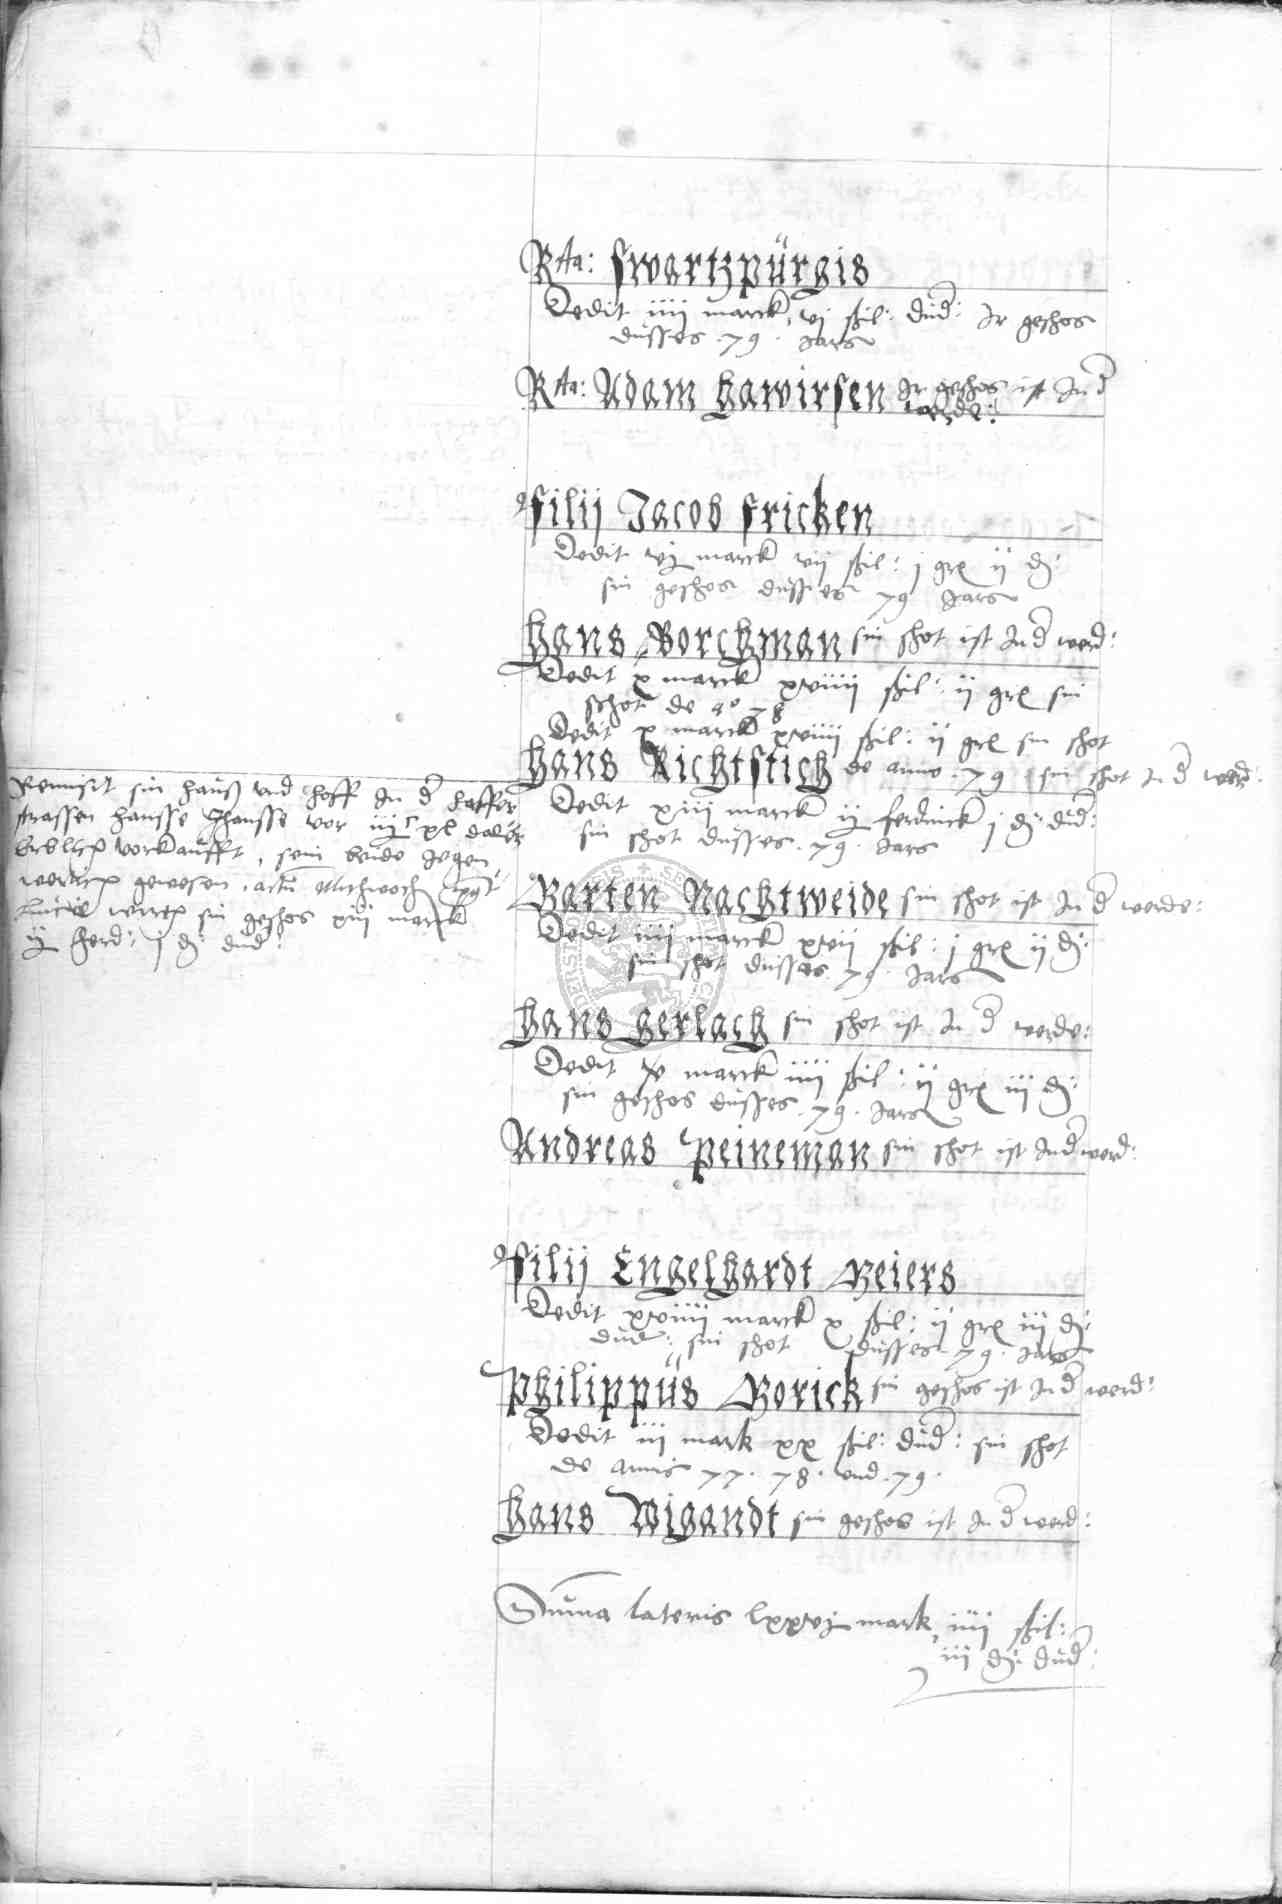 Rta: Swartzpürgis
Dedit iiij marck, vj ßil: düd: Ir geschos
düsses . 79 . Jars
Rta: Adam Hawirsen Ir geschos ist In d
werde:
filij Jacob fricken
Dedit vj marck vij ßil: j grl ij dj:
sin geschos düsses 79 Jars
Hans Borchman sin shot ist In d werd:
Dedit x marck xviiij ßil: ij grl sin
schot de ao 78
Dedit x marck xviiij ßil: ij grl sin shot
Hans Richtstich de anno . 79 sin shot In d werd:
Dedit xiij marck ij ferdinck j dj: düd:
sin shot düsses . 79 . Jars
Remisit sin hauß vnd hoff In d haffer
strassen Hansse Hansse vor iiijc xl daler
Erblich vorkaufft, sein beide Jegen
wertich gewesen . actü Mithwoch
sin geschos xiij marck
ij ferd: j dj düd:
Barten Nachtweide sin shot ist In d werde:
Dedit iiij marck xvij ßil: j grl ij dj:
sin shot düsses . 79 . Jars
Hans Gerlach sin shot ist In d werde:
Dedit v marck iiij ßil: ij grl iij dj:
sin geschos düsses . 79 . Jars
Andreas Peineman sin shot ist In d werd:
filij Engelhardt Beiers
Dedit xviiij marck x ßil: ij grl iij dj:
düd: sin shot düsses . 79 . Jars
Philippüs Borick sin geschos ist In d werd:
Dedit iij mark xx ßil: düd: sin shot
de annis 77 . 78 . vnd . 79 .
Hans Wigandt sin geschos ist In d werd:
Süma lateris lxxvj mark, iiij ßil:
iij dj: düd: